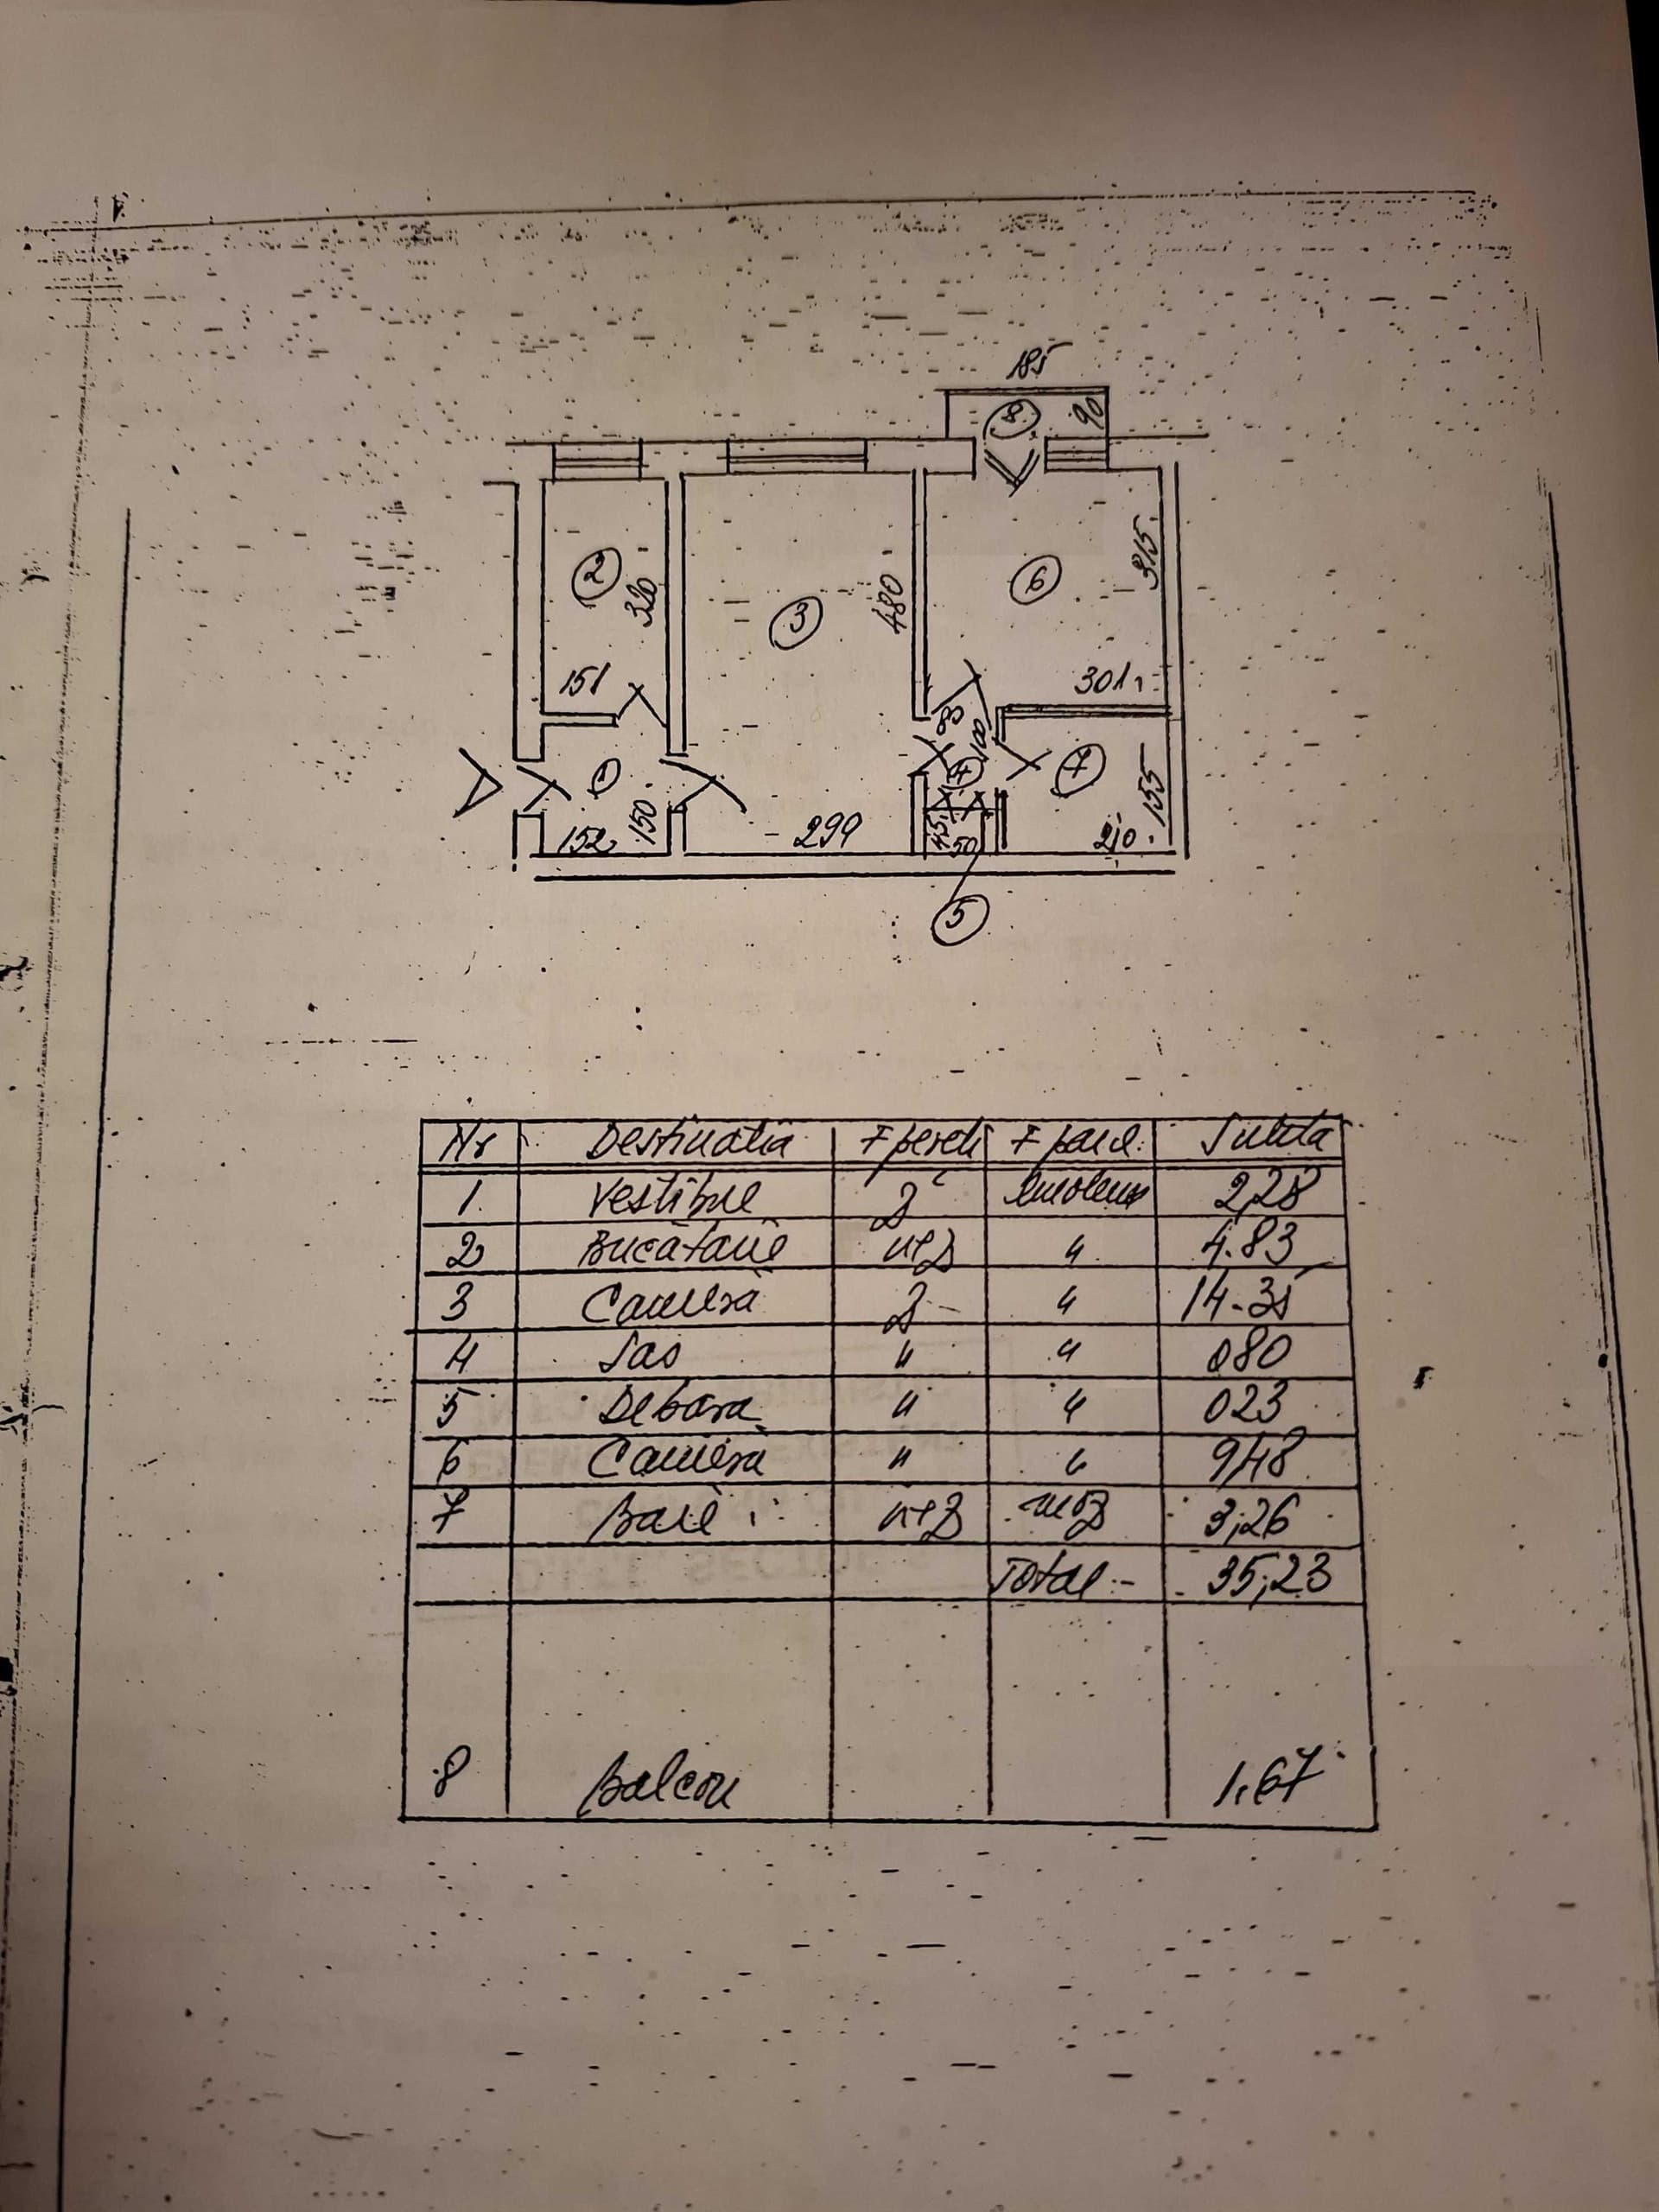 185
8 90
2 320
151
3 480
6 315
301
80 100
1 150
152
299
4
45 50
7 155
210
5
Nr Destinatia F pereti F pard. Sulita
1. Vestibul z linoleum 2,28
2 Bucătărie u+z " 4.83
3 Cameră z - " 14-35
4 Sas " " 080
5 Debara " " 023
6 Cameră " " 9,48
7 Baie u+z moz 3,26
Total - 35,23
8 Balcon 1.67